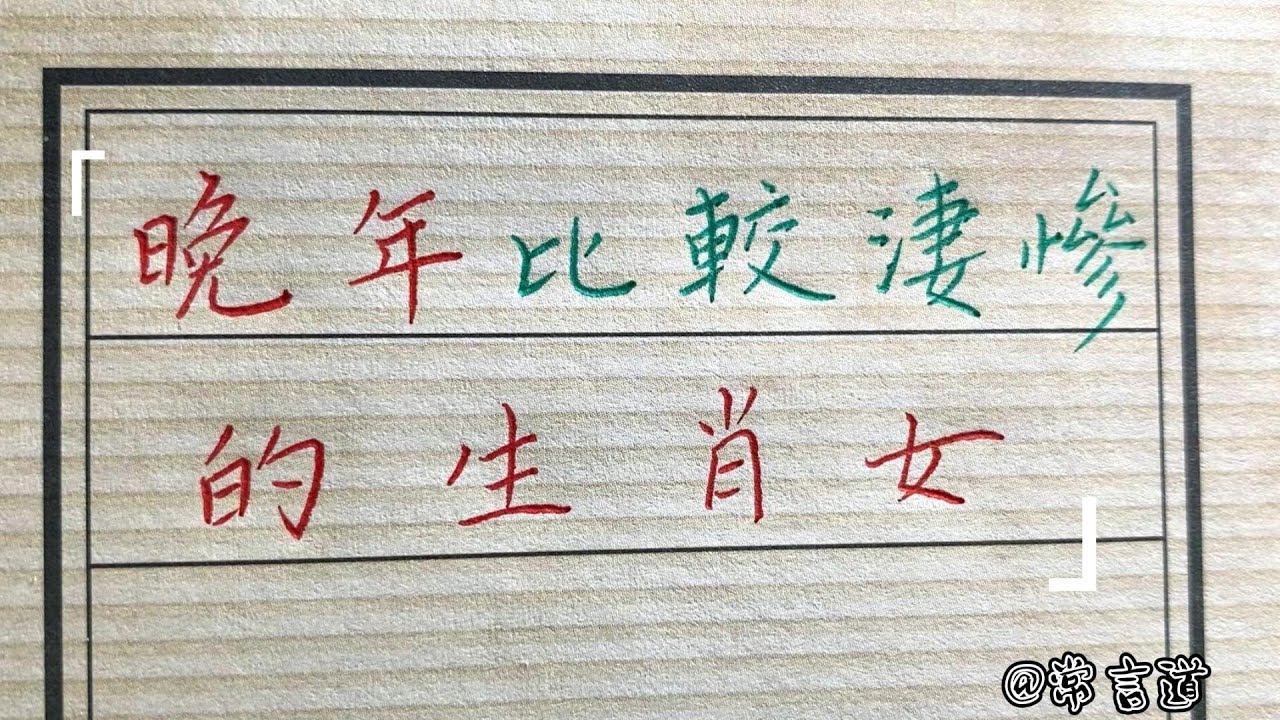 「晚年比較淒慘
的生肖女」
@常言道